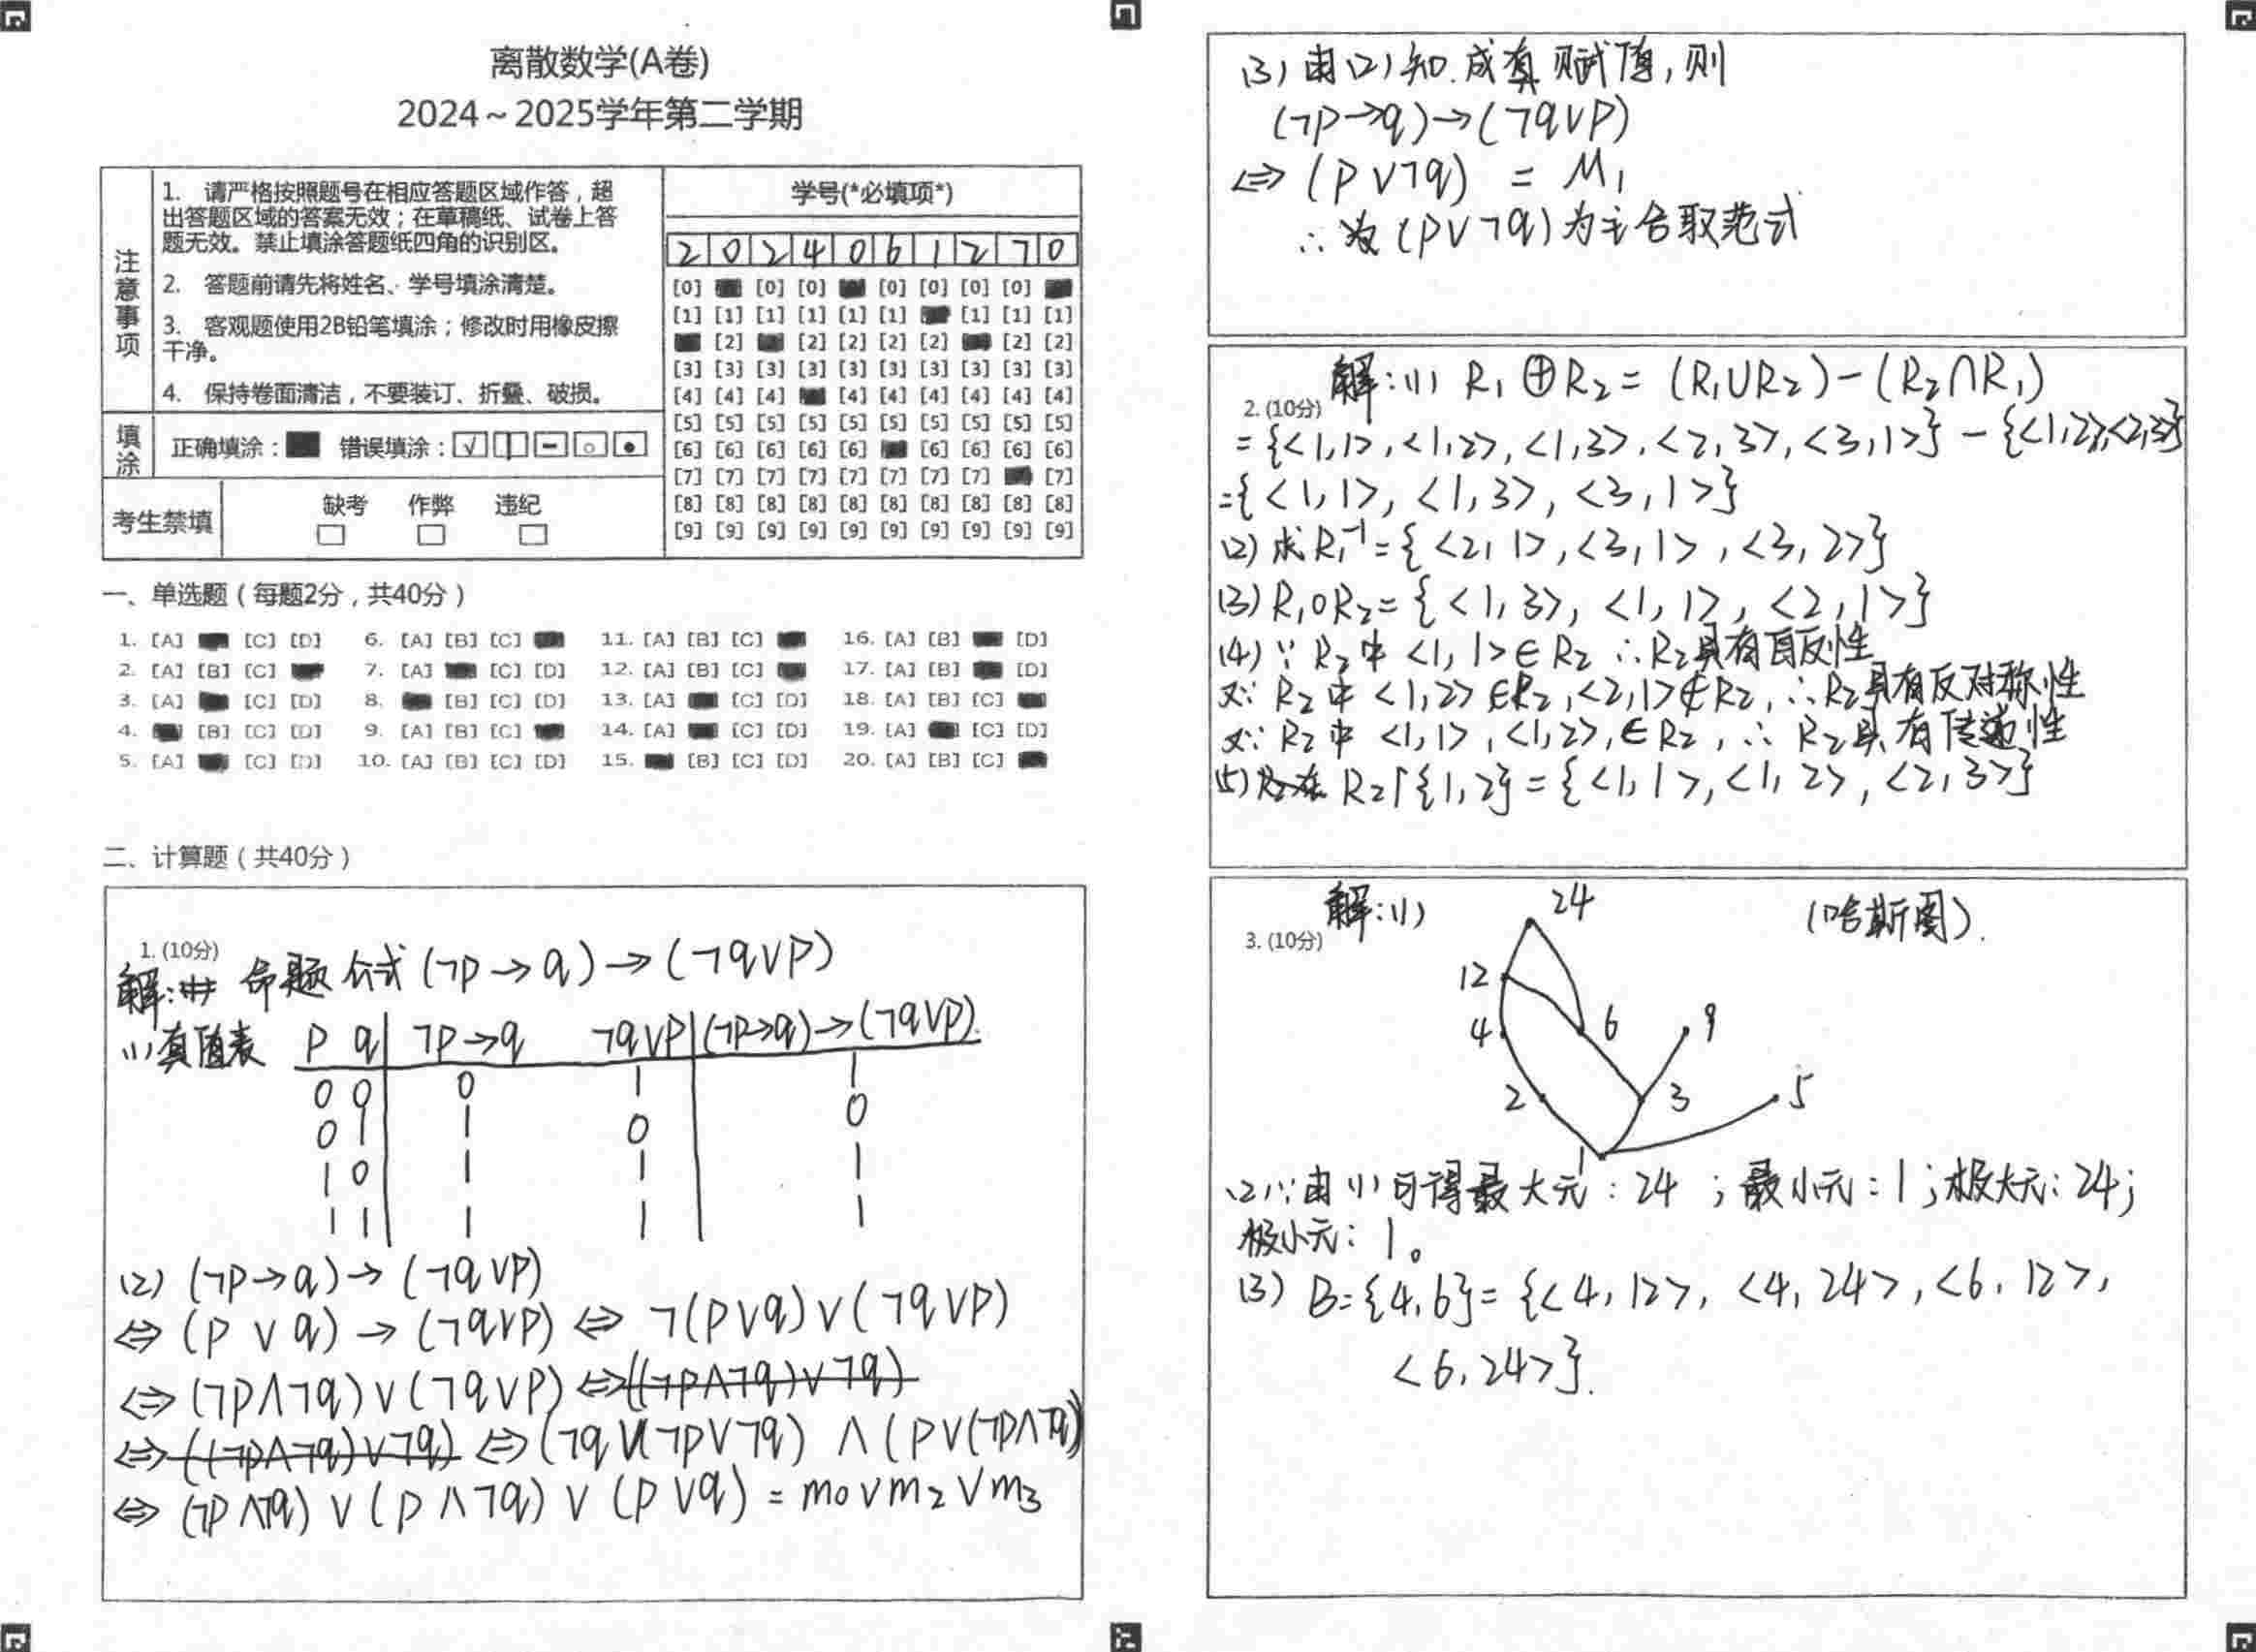 离散数学(A卷)
2024~2025学年第二学期
注意事项
1. 请严格按照题号在相应答题区域作答，超
出答题区域的答案无效；在草稿纸、试卷上答
题无效。禁止填涂答题纸四角的识别区。
2. 答题前请先将姓名、学号填涂清楚。
3. 客观题使用2B铅笔填涂；修改时用橡皮擦
干净。
4. 保持卷面清洁，不要装订、折叠、破损。
填涂
正确填涂： 错误填涂：
考生禁填
缺考 作弊 违纪
学号(*必填项*)
2 0 2 4 0 6 1 2 7 0
[0] [0] [0] [0] [0] [0] [0]
[1] [1] [1] [1] [1] [1] [1] [1] [1]
[2] [2] [2] [2] [2] [2] [2]
[3] [3] [3] [3] [3] [3] [3] [3] [3] [3]
[4] [4] [4] [4] [4] [4] [4] [4] [4]
[5] [5] [5] [5] [5] [5] [5] [5] [5] [5]
[6] [6] [6] [6] [6] [6] [6] [6] [6]
[7] [7] [7] [7] [7] [7] [7] [7] [7]
[8] [8] [8] [8] [8] [8] [8] [8] [8] [8]
[9] [9] [9] [9] [9] [9] [9] [9] [9] [9]
一、单选题（每题2分，共40分）
1. [A] [C] [D] 6. [A] [B] [C] 11. [A] [B] [C] 16. [A] [B] [D]
2. [A] [B] [C] 7. [A] [C] [D] 12. [A] [B] [C] 17. [A] [B] [D]
3. [A] [C] [D] 8. [B] [C] [D] 13. [A] [C] [D] 18. [A] [B] [C]
4. [B] [C] [D] 9. [A] [B] [C] 14. [A] [C] [D] 19. [A] [C] [D]
5. [A] [C] [D] 10. [A] [B] [C] [D] 15. [B] [C] [D] 20. [A] [B] [C]
二、计算题（共40分）
1. (10分)
解: 命题公式(¬p→q)→(¬q∨p)
(1)真值表 p q ¬p→q ¬q∨p (¬p→q)→(¬q∨p)
0 0 0 1 1
0 1 1 0 0
1 0 1 1 1
1 1 1 1 1
(2) (¬p→q)→(¬q∨p)
⇔(p∨q)→(¬q∨p)⇔¬(p∨q)∨(¬q∨p)
⇔(¬p∧¬q)∨(¬q∨p)⇔((¬p∧¬q)∨¬q)
⇔((¬p∧¬q)∨¬q)⇔(¬q∨(¬p∨¬q)∧(p∨(¬p∧¬q))
⇔(¬p∧¬q)∨(p∧¬q)∨(p∨q)=m0∨m2∨m3
(3)由(2)知.成真赋值,则
(¬p→q)→(¬q∨p)
⇔(p∨¬q)=M1
∴为(p∨¬q)为主合取范式
2. (10分)
解:(1) R1⊕R2=(R1∪R2)-(R2∩R1)
={<1,1>,<1,2>,<1,3>,<2,3>,<3,1>}-{<1,2>,<2,3>}
={<1,1>,<1,3>,<3,1>}
(2)求R1⁻¹={<2,1>,<3,1>,<3,2>}
(3)R1oR2={<1,3>,<1,1>,<2,1>}
(4)∵R2中<1,1>∈R2 ∴R2具有自反性
又∵R2中<1,2>∈R2,<2,1>∉R2,∴R2具有反对称性
又∵R2中<1,1>,<1,2>,∈R2,∴R2具有传递性
(5) R2↾{1,2}={<1,1>,<1,2>,<2,3>}
3. (10分)
解:(1) (哈斯图).
24
12
4 6 9
2 3 5
1
(2)∵由(1)可得最大元:24;最小元:1;极大元:24;
极小元:1。
(3) B={4,6}={<4,12>,<4,24>,<6,12>,
<6,24>}.